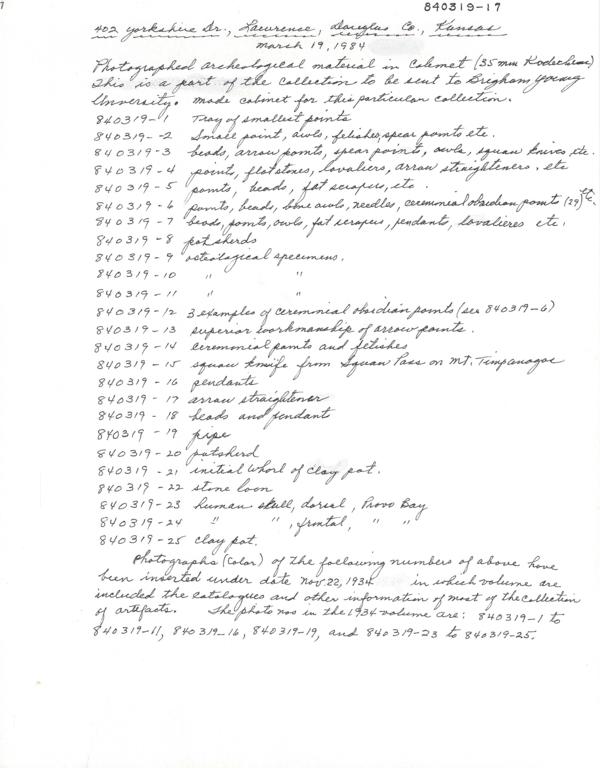 7
840319-17
402 Yorkshire Dr., Lawrence, Douglas Co., Kansas
March 19, 1984
Photographed archeological material in Cabinet (35 mm Kodachrome)
This is a part of the collection to be sent to Brigham Young
University. Made cabinet for this particular collection.
840319-1 Tray of smallest points
840319-2 Small point, awls, fetishes, spear points etc.
840319-3 beads, arrow points, spear points, awls, squaw knives, etc.
840319-4 points, flat stones, lavaliers, arrow straighteners, etc
840319-5 points, beads, fat scrapers, etc.
840319-6 points, beads, bone awls, needles, ceremonial obsidian points (29) etc.
840319-7 beads, points, awls, fat scrapers, pendants, lavalieres etc.
840319-8 potsherds
840319-9 osteological specimens.
840319-10 " "
840319-11 " "
840319-12 3 examples of ceremonial obsidian points (see 840319-6)
840319-13 superior workmanship of arrow points.
840319-14 ceremonial points and fetishes
840319-15 squaw knife from Squaw Pass on Mt. Timpanogos
840319-16 pendants
840319-17 arrow straightener
840319-18 beads and pendant
840319-19 pipe
840319-20 potsherd
840319-21 initial whorl of clay pot.
840319-22 stone
840319-23 human skull, dorsal, Provo Bay
840319-24 " ", frontal, " "
840319-25 clay pot.
Photographs (color) of the following numbers of above have
been inserted under date Nov. 22, 1934 in which volume are
included the catalogues and other information of most of the collection
of artefacts. The photo nos in the 1934 volume are: 840319-1 to
840319-11, 840319-16, 840319-19, and 840319-23 to 840319-25.